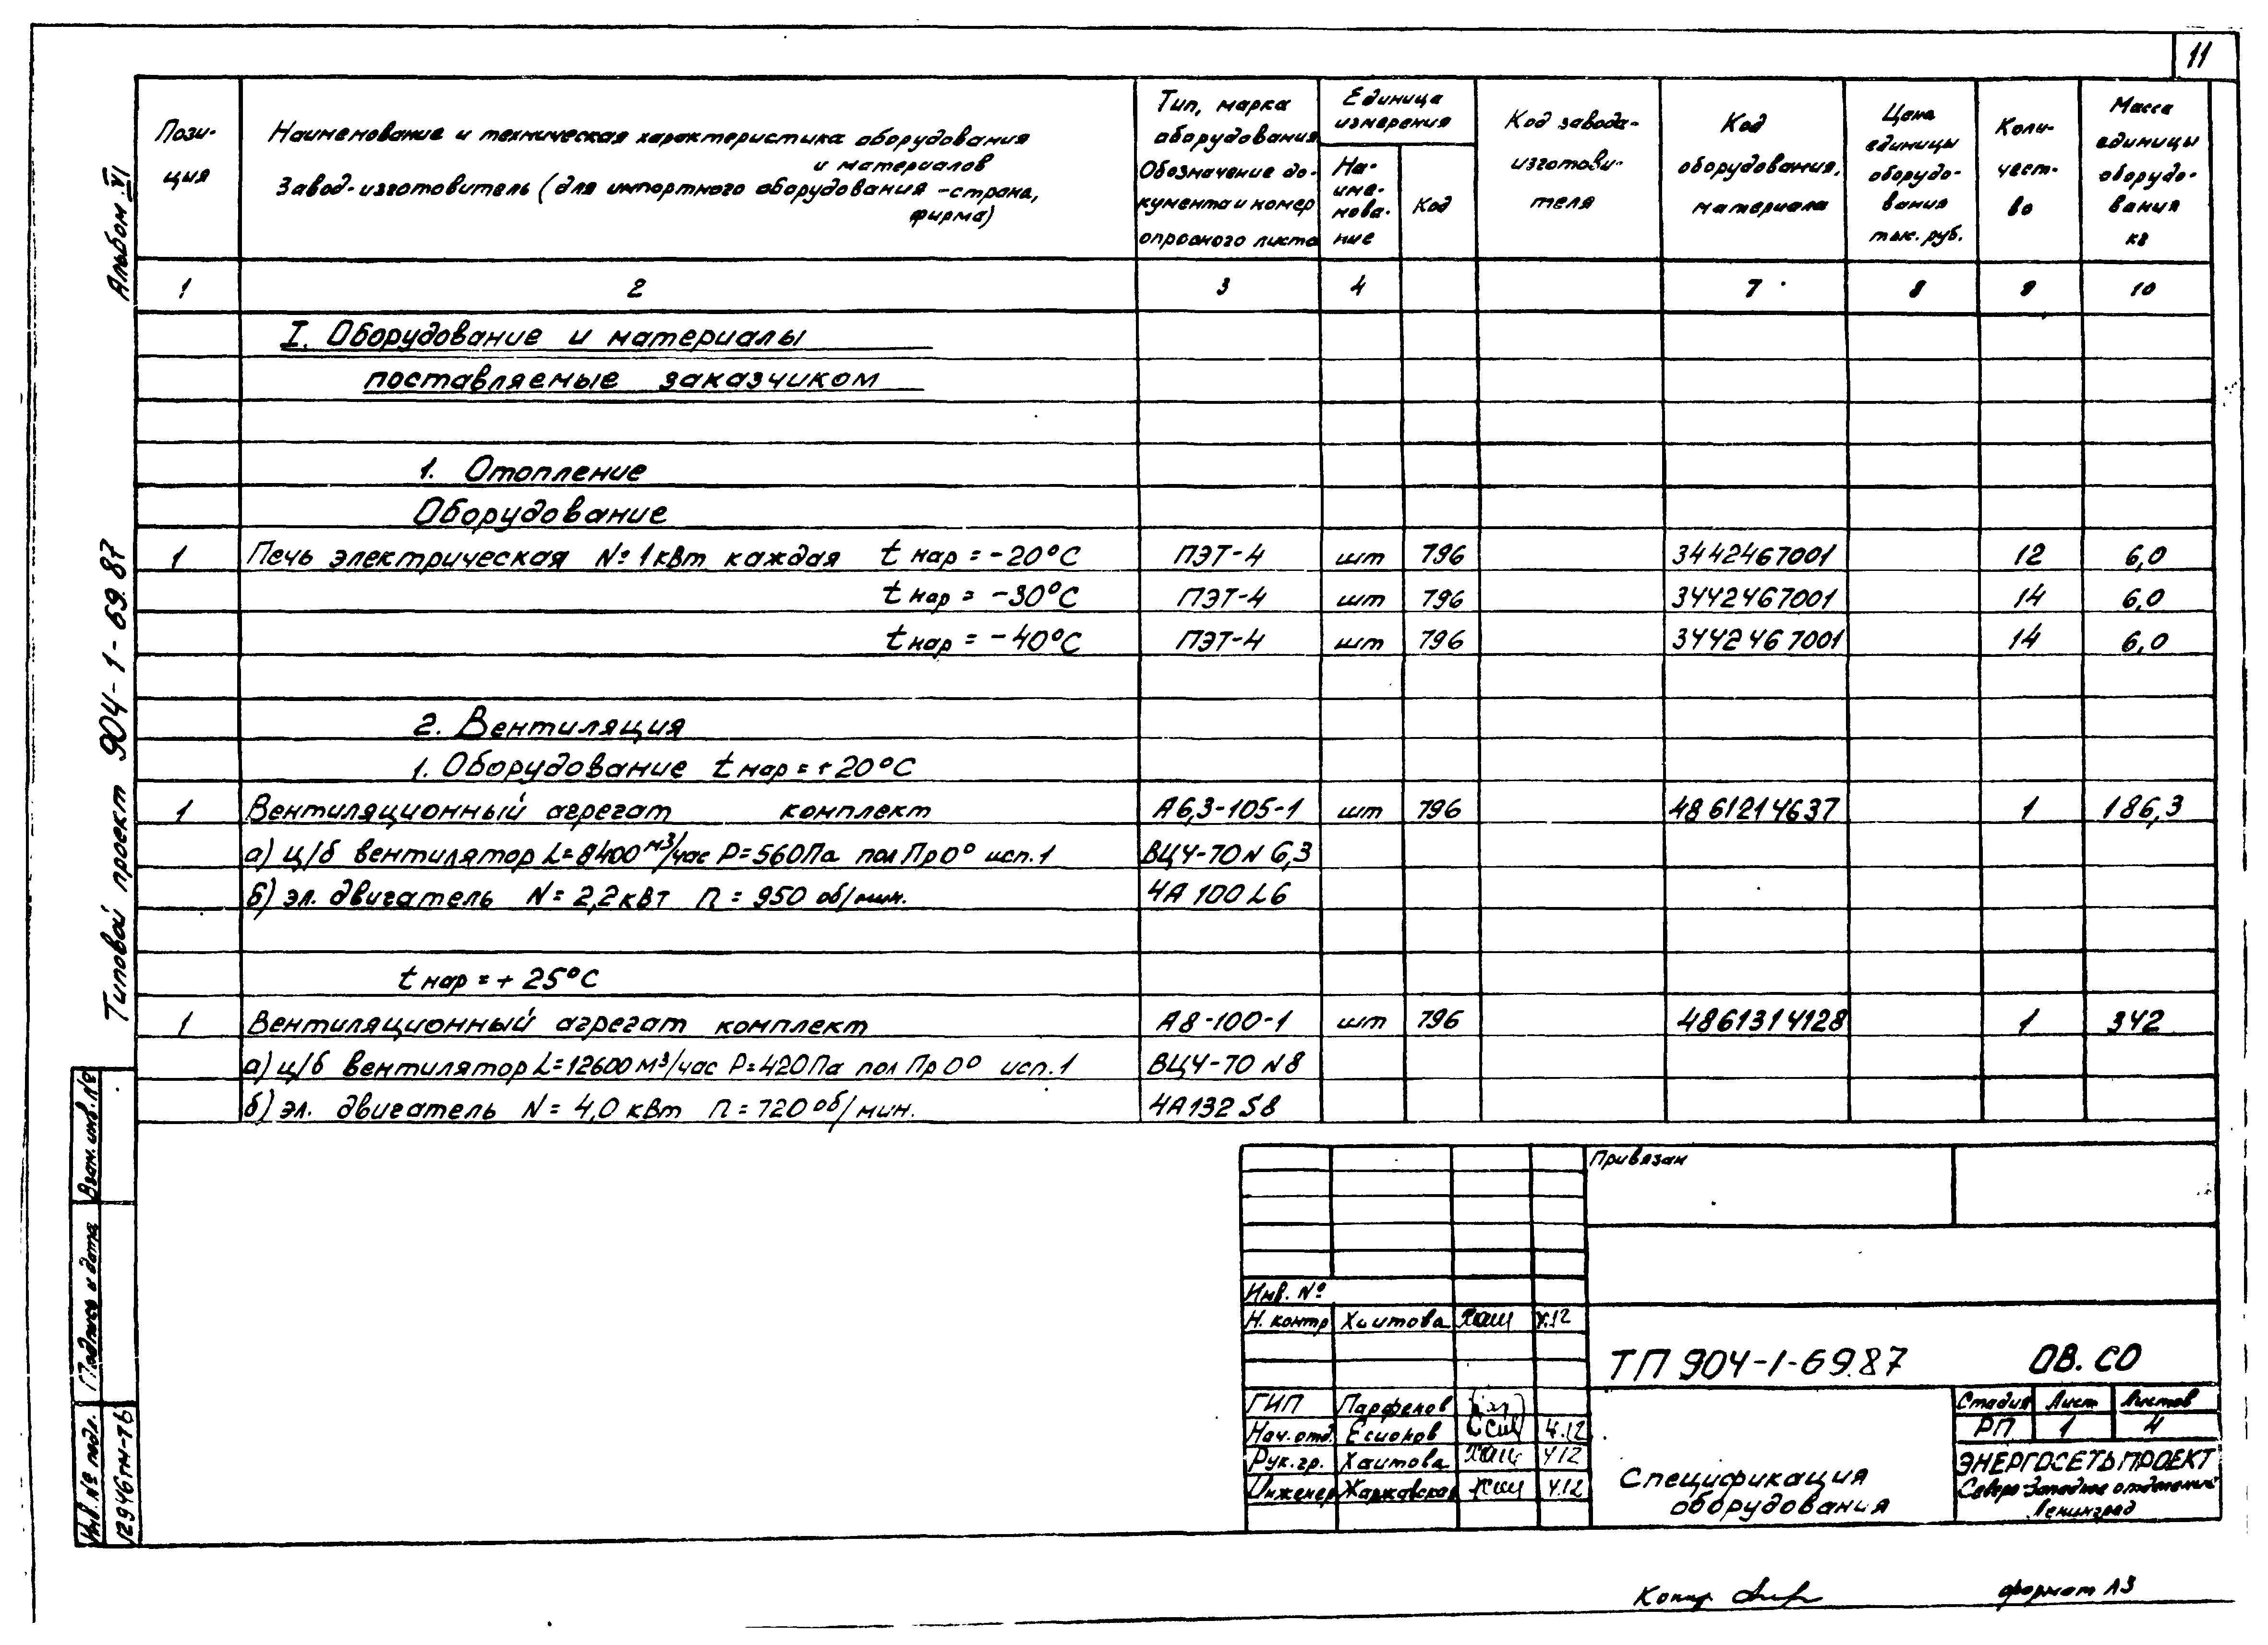 11
Альбом VI
Типовой проект 904-1-69.87
Пози-
ция
Наименование и техническая характеристика оборудования
и материалов
Завод-изготовитель (для импортного оборудования -страна,
фирма)
Тип, марка
оборудования
Обозначение до-
кумента и номер
опросного листа
Единица
измерения
На-
име-
нова-
ние
Код
Код завода-
изготови-
теля
Код
оборудования,
материала
Цена
единицы
оборудо-
вания
тыс. руб.
Коли-
чест-
во
Масса
единицы
оборудо-
вания
кг
1 2 3 4 7 8 9 10
I. Оборудование и материалы
поставляемые заказчиком
1. Отопление
Оборудование
1 Печь электрическая N=1квт каждая t нар = -20°С ПЭТ-4 шт 796 3442467001 12 6,0
t нар = -30°С ПЭТ-4 шт 796 3442467001 14 6,0
t нар = -40°С ПЭТ-4 шт 796 3442467001 14 6,0
2. Вентиляция
1. Оборудование t нар = +20°С
1 Вентиляционный агрегат комплект А6,3-105-1 шт 796 4861214637 1 186,3
а) ц/б вентилятор L=8400 м3/час Р=560Па пол Пр0° исп.1 ВЦ4-70 N 6,3
б) эл. двигатель N = 2,2 кВт п = 950 об/мин. 4А 100 L6
t нар = + 25°С
1 Вентиляционный агрегат комплект А8-100-1 шт 796 4861314128 1 342
а) ц/б вентилятор L=12600 м3/час Р=420Па пол Пр 0° исп.1 ВЦ4-70 N8
б) эл. двигатель N = 4,0 кВт п = 720 об/мин. 4А132 S8
Взам. инв. №
Подпись и дата
Инв. № подл.
12946тм-т6
Привязан
Инв. №
Н. контр Хаитова
ТП 904-1-69.87 ОВ.СО
ГИП Парфенов
Нач. отд. Есионов
Рук. гр. Хаитова
Инженер Жарковская
Стадия Лист Листов
РП 1 4
Спецификация
оборудования
ЭНЕРГОСЕТЬПРОЕКТ
Северо-Западное отделение
Ленинград
Копир
формат А3